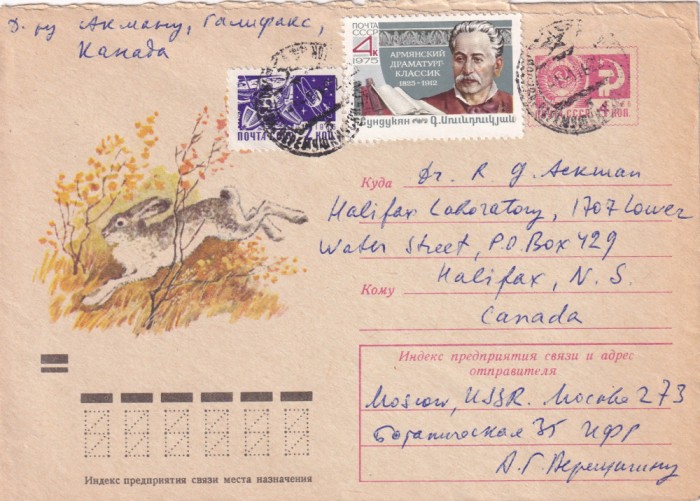 Д-ру Акману, Галифакс,
Канада
ПОЧТА
СССР
4к
1975
АРМЯНСКИЙ
ДРАМАТУРГ-
КЛАССИК
1825-1912
Сундукян
ПОЧТА
КОП.
ПОЧТА СССР
КОП.
Куда Dr. R. G. Ackman
Halifax Laboratory, 1707 Lower
Water Street, P.O. Box 429
Halifax, N. S.
Кому
Canada
Индекс предприятия связи и адрес
отправителя
Moscow, USSR. Москва 273
Ботаническая 35 ИФР
А. Г. Верещагину
Индекс предприятия связи места назначения